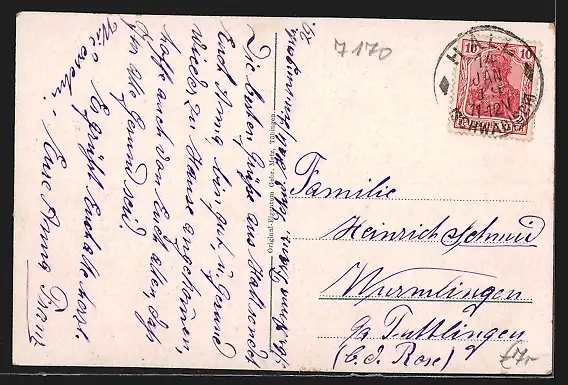 7170
HALL
14
JAN
11-12V
(SCHWÄB.)
10 10
Original-Eigentum Gebr. Metz, Tübingen.
Die besten Grüße aus Hall sendet
Euch Anna, bin gut u. gesund
wieder zu Hause angekommen,
hoffe auch von Euch allen, daß
Ihr alle Gesund seid.
Es grüßt Euch alle herzl.
Eure Anna Franz
Wiedersehn!
Familie
Heinrich Schmid
Wurmlingen
b/a Tuttlingen
(b. d. Rose)